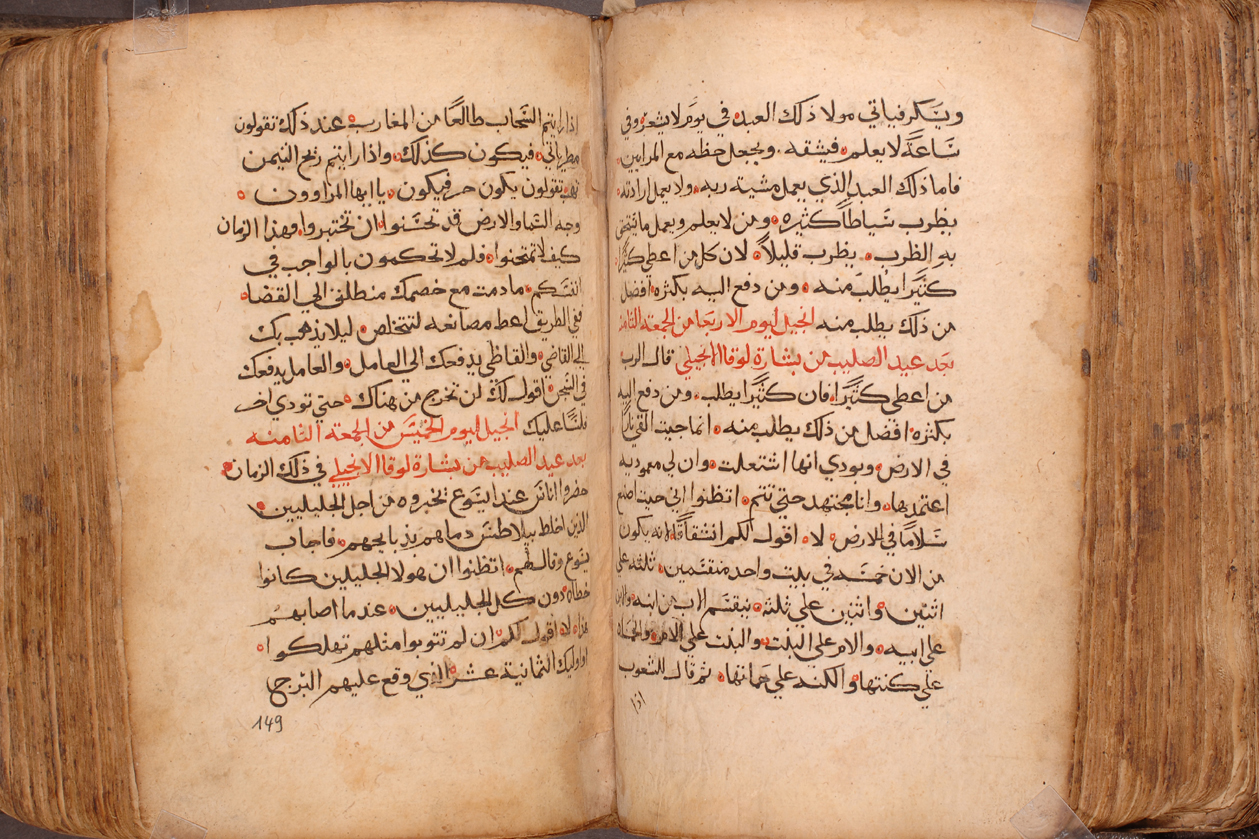 ويسكر فياتي مولا ذلك العبد في يوم لا يشعر وفي
ساعة لا يعلم فيشقه ويجعل حظه مع المرايين
فاما ذلك العبد الذي يعمل مشيته ربه ولا يعمل ارادته
يظرب سياطا كثيره ومن لا يعلم ويعمل ما يستحق
به الظرب يظرب قليلاً لان كل من اعطي كثيرا
كثيرا يطلب منه ومن دفع اليه بكثره افضل
من ذلك يطلب منه انجيل ليوم الاربعا من الجمعة الثامنه
بعد عيد الصليب من بشارة لوقا الانجيلي قال الرب
من اعطي كثيرا فان كثيرا يطلب ومن دفع اليه
بكثره افضل من ذلك يطلب منه انما جيت القي نارا
في الارض وبودي انها اشتعلت وان لي معموديه
اعتمد بها وانا مجتهد حتي تتم اتظنوا اني حيت اصنع
سلامًا في الارض لا اقول لكم انشقاقًا لانه يكون
من الان خمسه في بيت واحد منقسمين ثلثه علي
اثنين واثنين علي ثلثه ينقسم الاب من ابنه والابن
علي ابيه والام علي البنت والبنت علي الام والحماة
علي كنتها والكنه علي حماتها ثم قال للشعوب
اذا
اذا رايتم السحاب طالعًا من المغارب عند ذلك تقولون
مطر ياتي فيكون كذلك واذا رايتم ريح التيمن
تهب تقولون يكون حر فيكون يا ايها المراوون
وجه السما والارض قد تحسنوا ان تختبروا فهذا الزمان
كيف لا تمتحنوا فلم لا تحكمون بالواجب في
انفسكم ما دمت مع خصمك منطلق الي القضا
ففي الطريق اعط مصانعه لتتخلص ليلا يذهب بك
الي القاضي والقاظي يدفعك الي العامل والعامل يدفعك
في السجن اقول لك لن تخرج من هناك حتي تودي اخر
فلسًا عليك انجيل ليوم الخميس من الجمعه الثامنه
بعد عيد الصليب من بشارة لوقا الانجيلي في ذلك الزمان
حضروا اناس عند اليسوع نخبروه من اجل الجليليين
الذين اخلط بيلاطس دماهم بذبايحهم فاجاب
يسوع وقال لهم اتظنوا ان هولا الجليلين كانوا
خطاه دون كل الجليليين عندما اصابهم
هذا لا اقول لكم ان لم تتوبوا مثلهم تهلكوا
او اوليك الثمانية عشر الذي وقع عليهم البرج
149